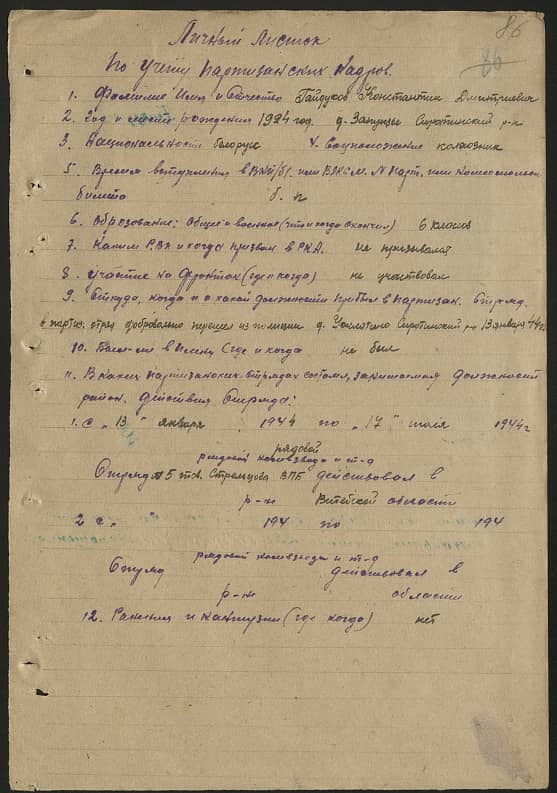 86
86
Личный Листок
по учету партизанских кадров.
1. Фамилие Имя и Отчество Гайдуков Константин Дмитриевич
2. Год и место рождения 1924 год. д. Сиротинский р-н
3. Национальность белорус 4. Соцположение колхозник
5. Время вступления в ВКП/б/. или ВЛКСМ. N Парт. или комсомольск.
билета б. п
6. Образование: Общее и военное (что и когда окончил) 6 класов
7. Каким Р.В.К и когда призван в РККА. не призывался
8. Участие на Фронтах (где и когда) не участвовал
9. Откуда, когда и с какой должности прибыл в партизан. Отряд.
в партиз. отряд добровольно перешел из полиции д. Сиротинский р-н 13 января 44 г.
10. Был-ли в плену (где и когда не был
11. В каких партизанских отрядах состоял, занимаемая должность
район. действия Отряда:
1. с „13" января 1944 по „17" июля 1944 г
рядовой
рядовой комвзвода и т-д
Отряд №5 тов. Стрельцова ВПБ действовал в
р-не Витебской области
2 с „ " 194 по 194
рядовой комвзвода и т-д
Отряд действовал в
р-не области
12. Ранения и контузии (где когда) нет